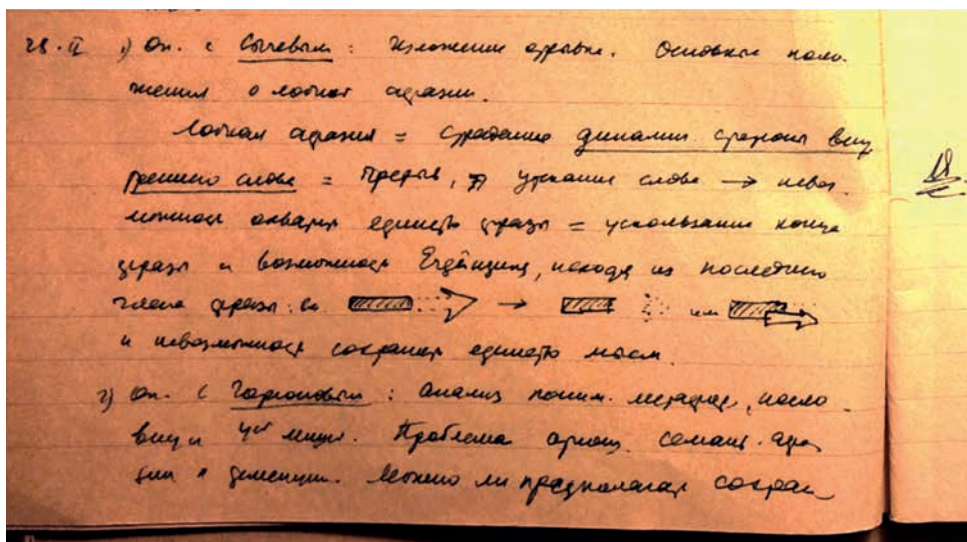 28.II 1) Оп. с Сычевым: Изложение отрывка. Основные поло-
жения о лобной афазии.
Лобная афазия = страдание динамич. стороны внут
реннего слова =
возможность охватить единство фразы = ускользание конца
фразы и возможность Ergänzung, исходя из последнего
члена фразы: →
и невозможность сохранить единство мысли.
2) Оп. с : Анализ поним. метафор, посло-
виц и. Проблема семант. афа
зии и деменции. Можно ли предполагать сохран